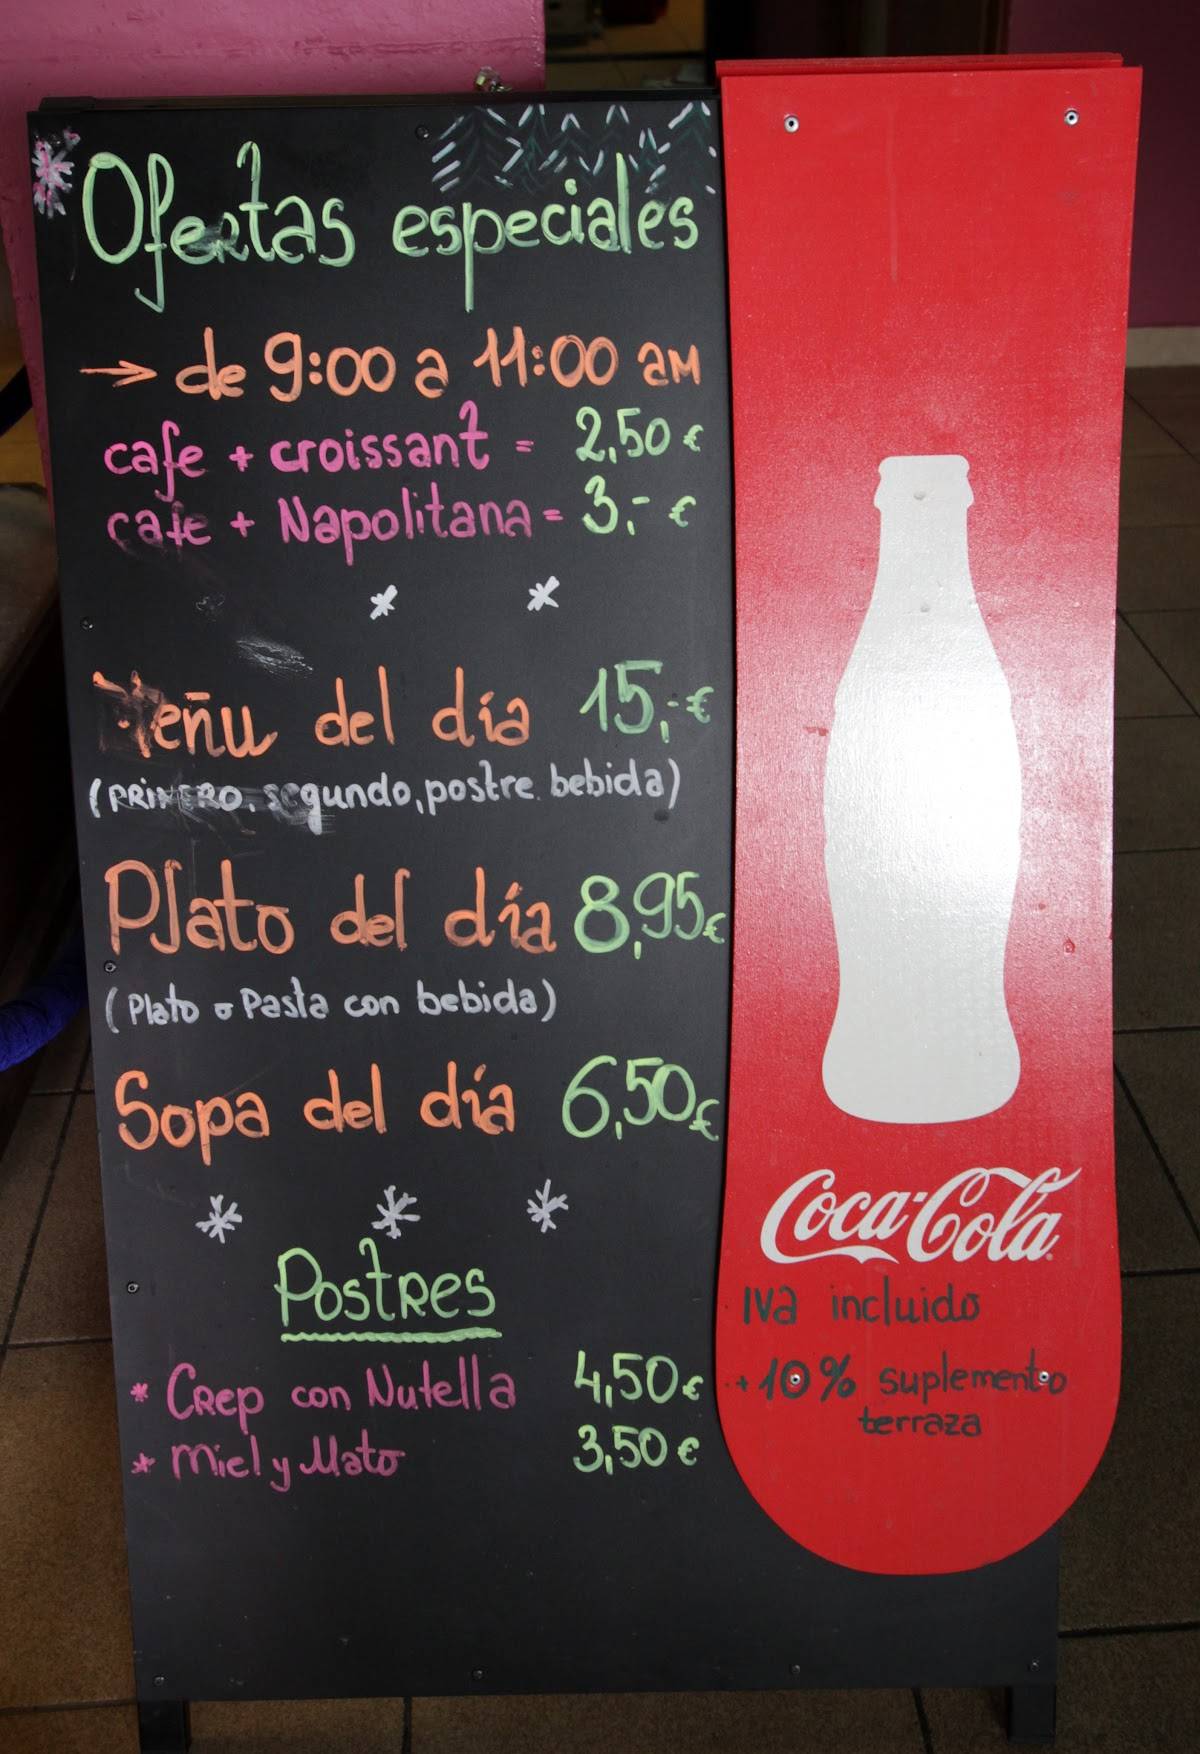 Ofertas especiales
→ de 9:00 a 11:00 am
cafe + croissant = 2,50 €
cafe + Napolitana = 3,- €
Meñu del día 15,- €
(PRIMERO, segundo, postre bebida)
Plato del día 8,95 €
(Plato o Pasta con bebida)
Sopa del día 6,50 €
Postres
* Crep con Nutella 4,50 €
* Miel y Mato 3,50 €
Coca-Cola
IVa incluido
+ 10% suplemento
terraza